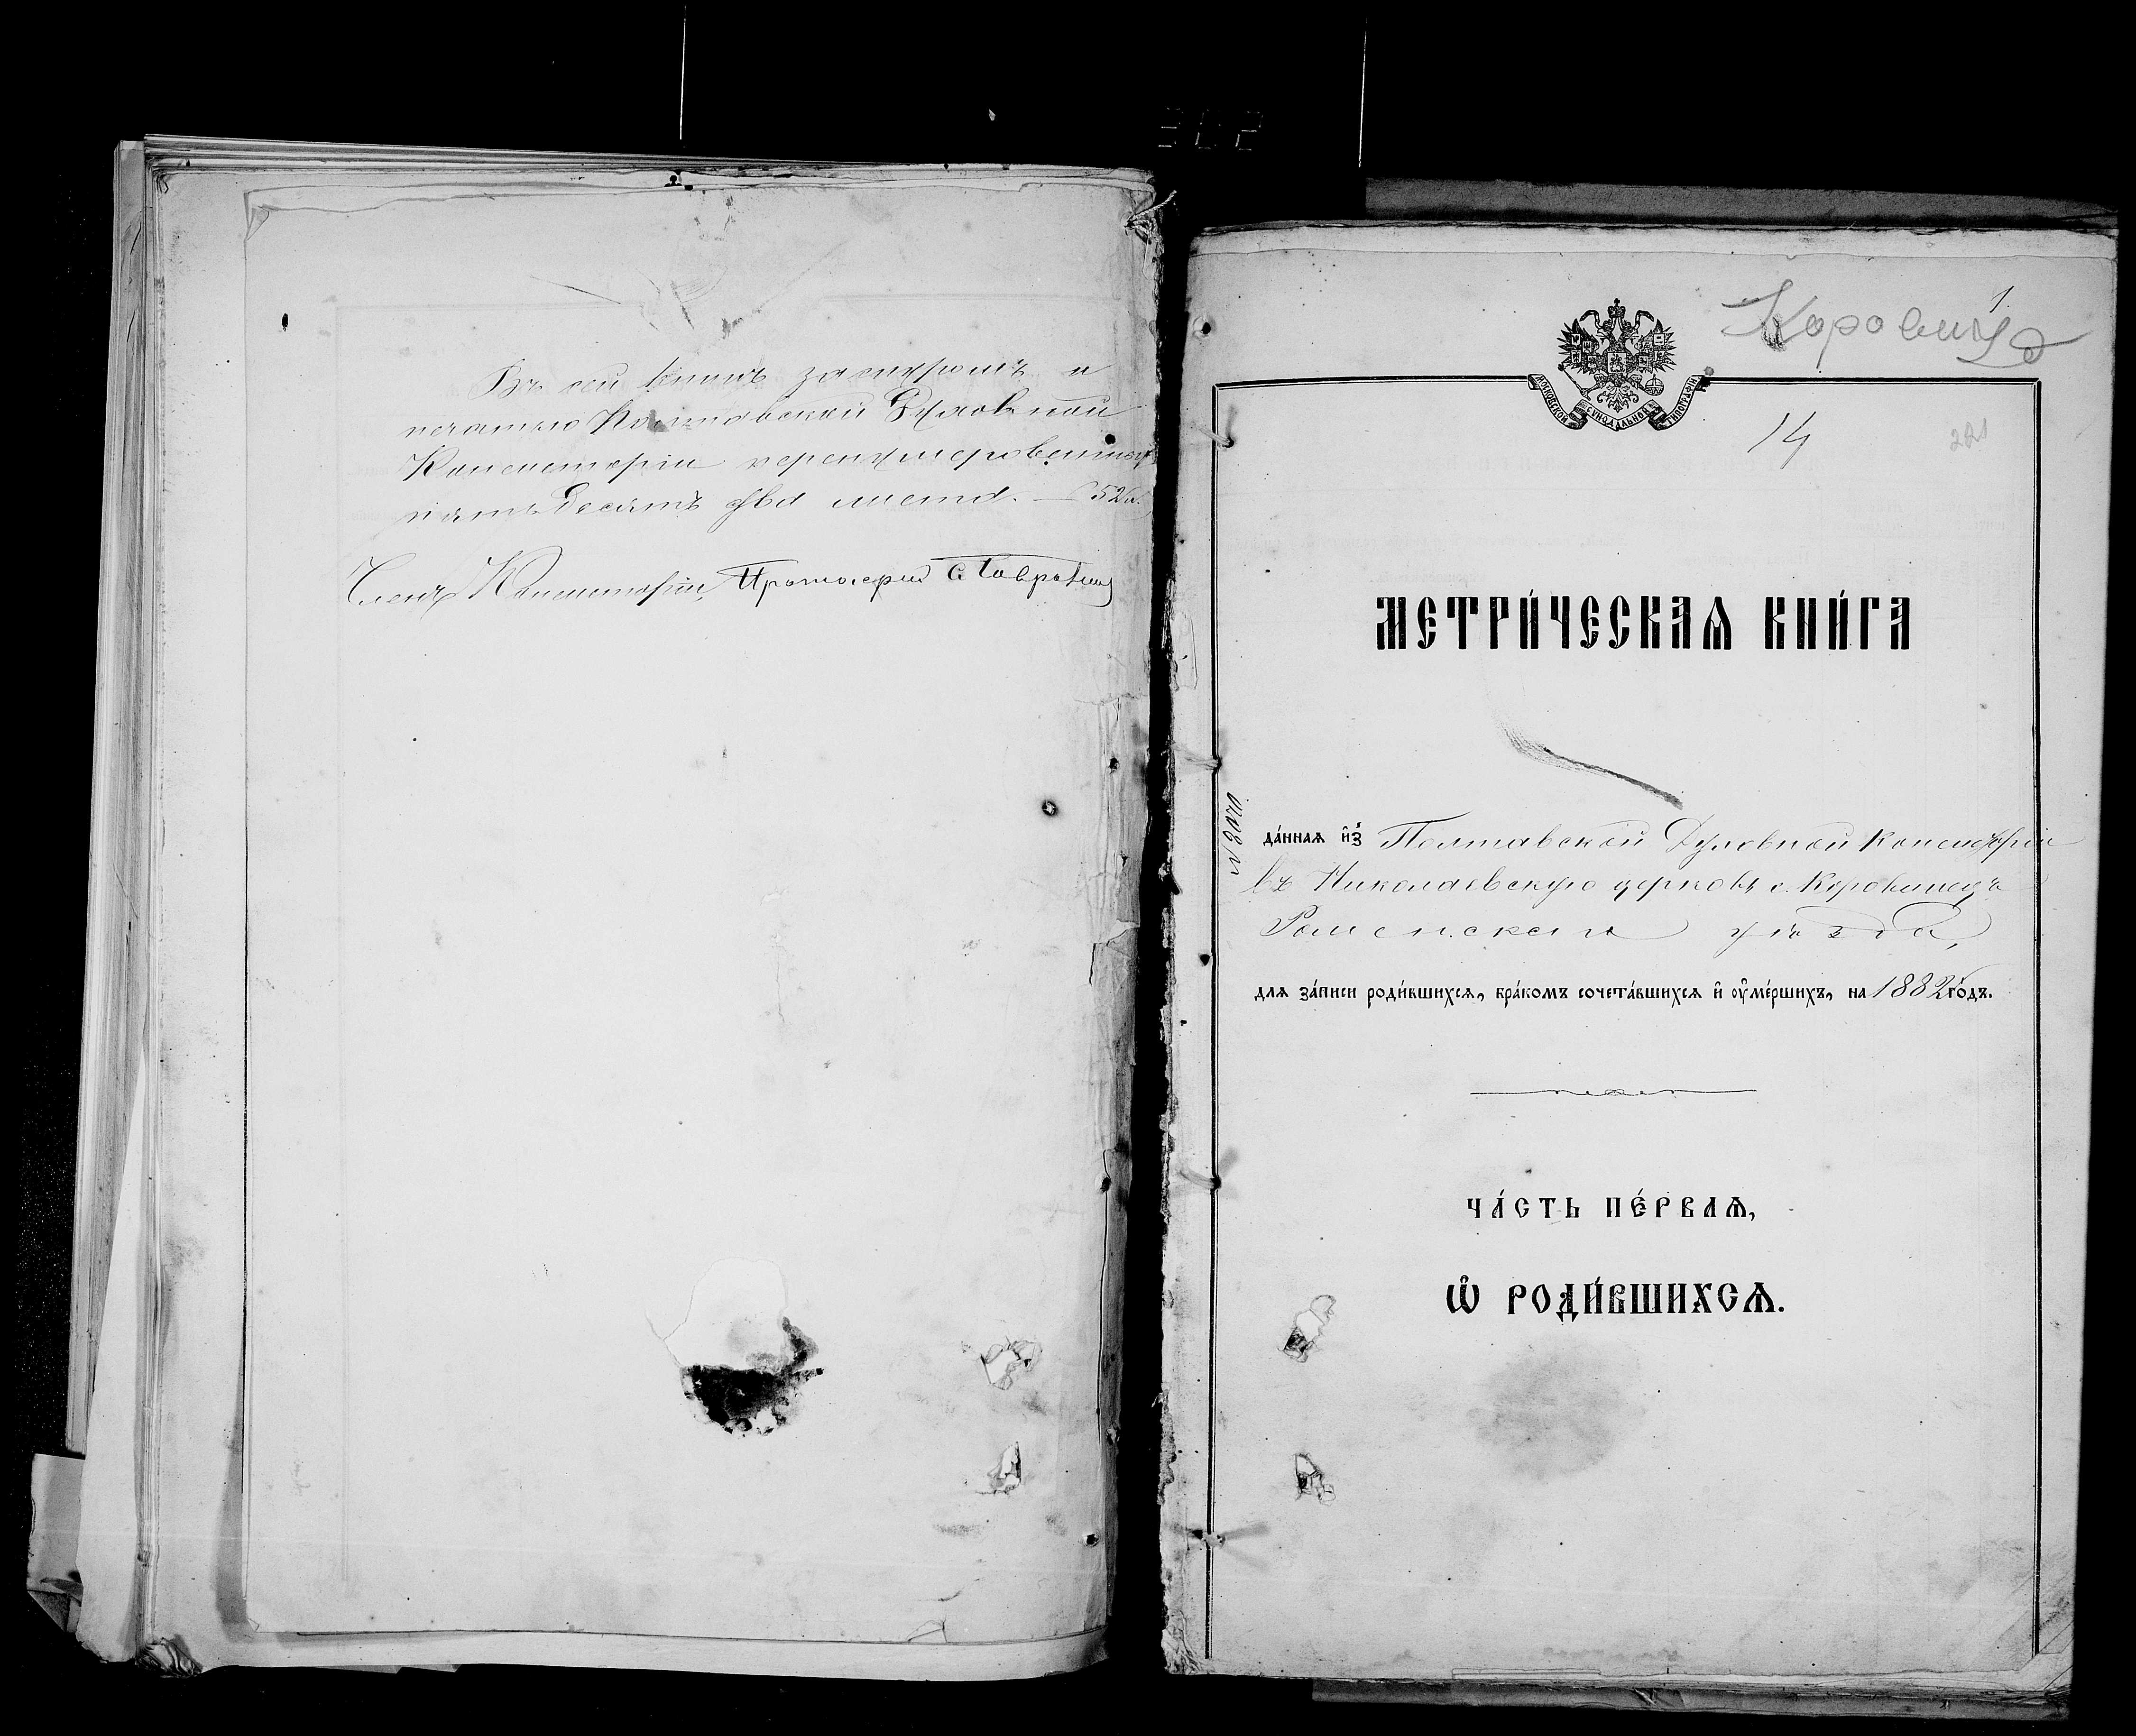 Въ сей книгѣ за шнуромъ и
печатью Полтавской Духовной
Консисторіи перенумерованныхъ
пятьдесятъ два листа. — 52 л.
Членъ Консисторіи, Протоіерей
1.
Коровинцы
МОСКОВСКОЙ СѴНОДАЛЬНОЙ ТИПОГРАФІИ
14
221
МЕТРИ́ЧЕСКАѦ КНИ́ГА
да́нная и҆з̾ Полтавской Духовной Консисторіи
въ Николаевскую церковь с. Коровинецъ
Роменскаго уѣзда,
для за́писи роди́вшихся, бра́комъ сочета́вшихся и҆ оу҆ме́ршихъ, на 1882 го́дъ.
ЧА́СТЬ ПЕ́РВАѦ,
Ѡ҆ РОДИ́ВШИХСѦ.